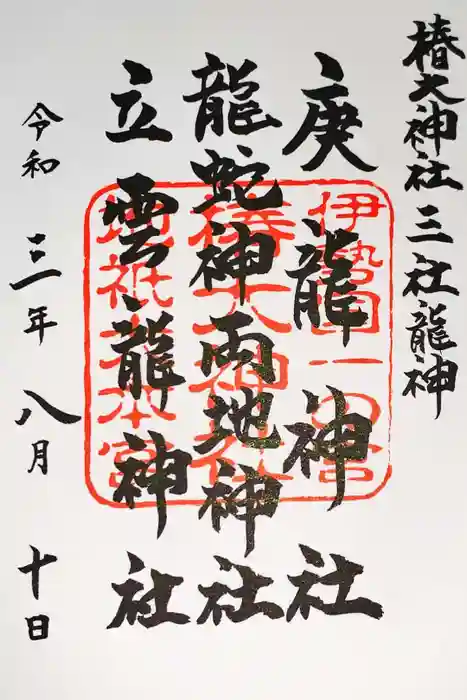 椿大神社三社龍神
庚龍神社
龍蛇神両地神社
立雲龍神社
令和三年八月十日
伊勢国一の宮
椿大神社
地祇大本宮